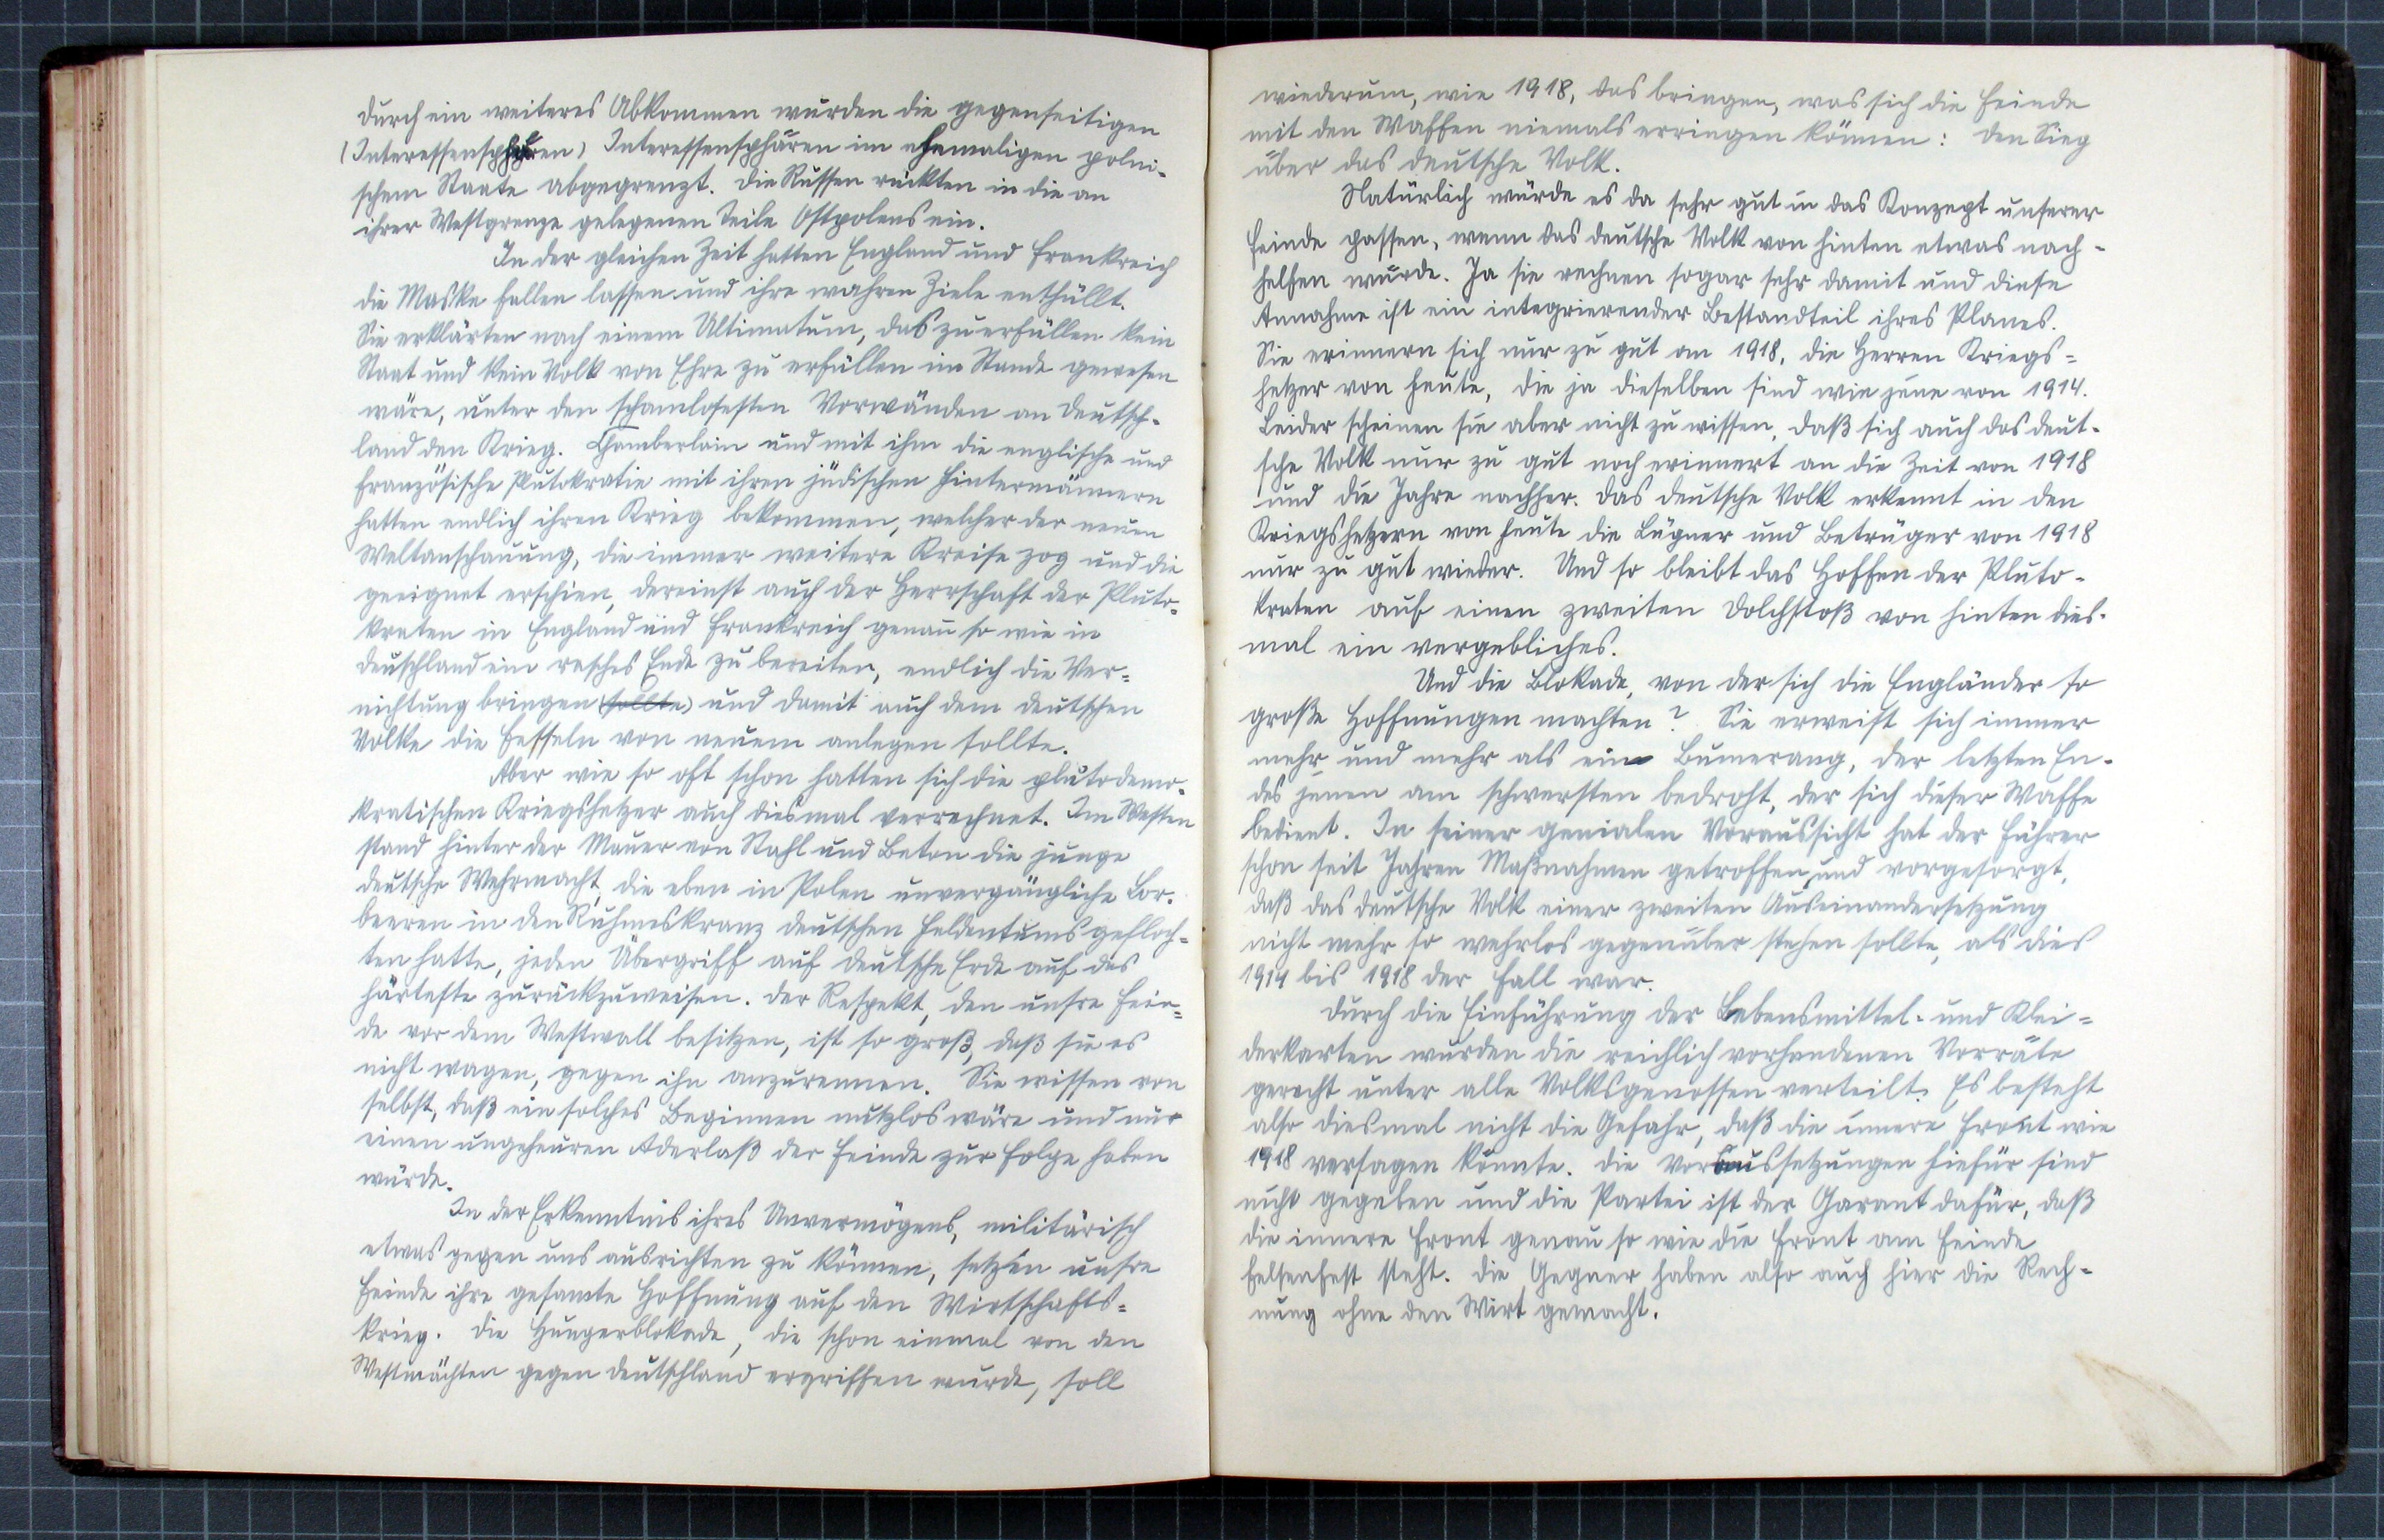 Durch ein weiteres Abkommen wurden die gegenseitigen
(Interessensphären) Interessensphären im ehemaligen polni-
schem Staate abgegrenzt. Die Russen rückten in die an
ihrer Westgrenze gelegenen Teile Ostpolens ein.
In der gleichen Zeit hatten England und Frankreich
die Maske fallen lassen und ihre wahren Ziele enthüllt.
Sie erklärten nach einem Ultimatum, das zu erfüllen kein
Staat und kein Volk von Ehre zu erfüllen im Stande gewesen
wäre, unter den schamlosesten Vorwänden an Deutsch-
land den Krieg. Chamberlain und mit ihm die englische und
französische Plutokratie mit ihren jüdischen Hintermännern
hatten endlich ihren Krieg bekommen, welcher der neuen
Weltanschauung, die immer weitere Kreise zog und die
geeignet erschien, dereinst auch der Herrschaft der Pluto-
kraten in England und Frankreich genau so wie in
Deuschland ein rasches Ende zu bereiten, endlich die Ver-
nichtung bringen (sollte) und damit auch dem deutschen
Volke die Fesseln von neuem anlegen sollte.
Aber wie so oft schon hatten sich die plutodemo-
kratischen Kriegshetzer auch diesmal verrechnet. Im Westen
stand hinter der Mauer von Stahl und Beton die junge
deutsche Wehrmacht, die eben in Polen unvergängliche Lor-
beeren in den Ruhmeskranz deutschen Heldentums gefloch-
ten hatte, jeden Übergriff auf deutsche Erde auf das
härteste zurückzuweisen. Der Respekt, den unsre Fein-
de vor dem Westwall besitzen, ist so groß, daß sie es
nicht wagen, gegen ihn anzurennen. Sie wissen von
selbst, daß ein solches Beginnen nutzlos wäre und nur
einen ungeheuren Aderlaß der Feinde zur Folge haben
würde.
In der Erkenntnis ihres Unvermögens, militärisch
etwas gegen uns ausrichten zu können, setzen unsre
Feinde ihre gesamte Hoffnung auf den Wirtschafts-
krieg. Die Hungerblokade, die schon einmal von den
Westmächten gegen Deutschland ergriffen wurde, soll
wiederum, wie 1918, das bringen, was sich die Feinde
mit den Waffen niemals erringen können: den Sieg
über das deutsche Volk.
Natürlich würde es da sehr gut in das Konzept unserer
Feinde passen, wenn das deutsche Volk von hinten etwas nach-
helfen würde. Ja sie rechnen sogar sehr damit und diese
Annahme ist ein integrierender Bestandteil ihres Planes.
Sie erinnern sich nur zu gut an 1918, die Herren Kriegs-
hetzer von heute, die ja dieselben sind wie jene von 1914.
Leider scheinen sie aber nicht zu wissen, daß sich auch das deut-
sche Volk nur zu gut noch erinnert an die Zeit von 1918
und die Jahre nachher. Das deutsche Volk erkennt in den
Kriegshetzern von heute die Lügner und Betrüger von 1918
nur zu gut wieder. Und so bleibt das Hoffen der Pluto-
kraten auf einen zweiten Dolchstoß von hinten dies-
mal ein vergebliches.
Und die Blokade, von der sich die Engländer so
große Hoffnungen machten? Sie erweist sich immer
mehr und mehr als ein Bumerang, der letzten En-
des jenen am schwersten bedroht, der sich dieser Waffe
bedient. In seiner genialen Voraussicht hat der Führer
schon seit Jahren Maßnahmen getroffen und vorgesorgt,
daß das deutsche Volk einer zweiten Auseinandersetzung
nicht mehr so wehrlos gegenüber stehen sollte, als dies
1914 bis 1918 der Fall war.
Durch die Einführung der Lebensmittel- und Klei-
derkarten wurden die reichlich vorhandenen Vorräte
gerecht unter alle Volksgenossen verteilt. Es besteht
also diesmal nicht die Gefahr, daß die innere Front wie
1918 versagen könnte. Die Voraussetzungen hiefür sind
nicht gegeben und die Partei ist der Garant dafür, daß
die innere Front genau so wie die Front am Feinde
felsenfest steht. Die Gegner haben also auch hier die Rech-
nung ohne den Wirt gemacht.